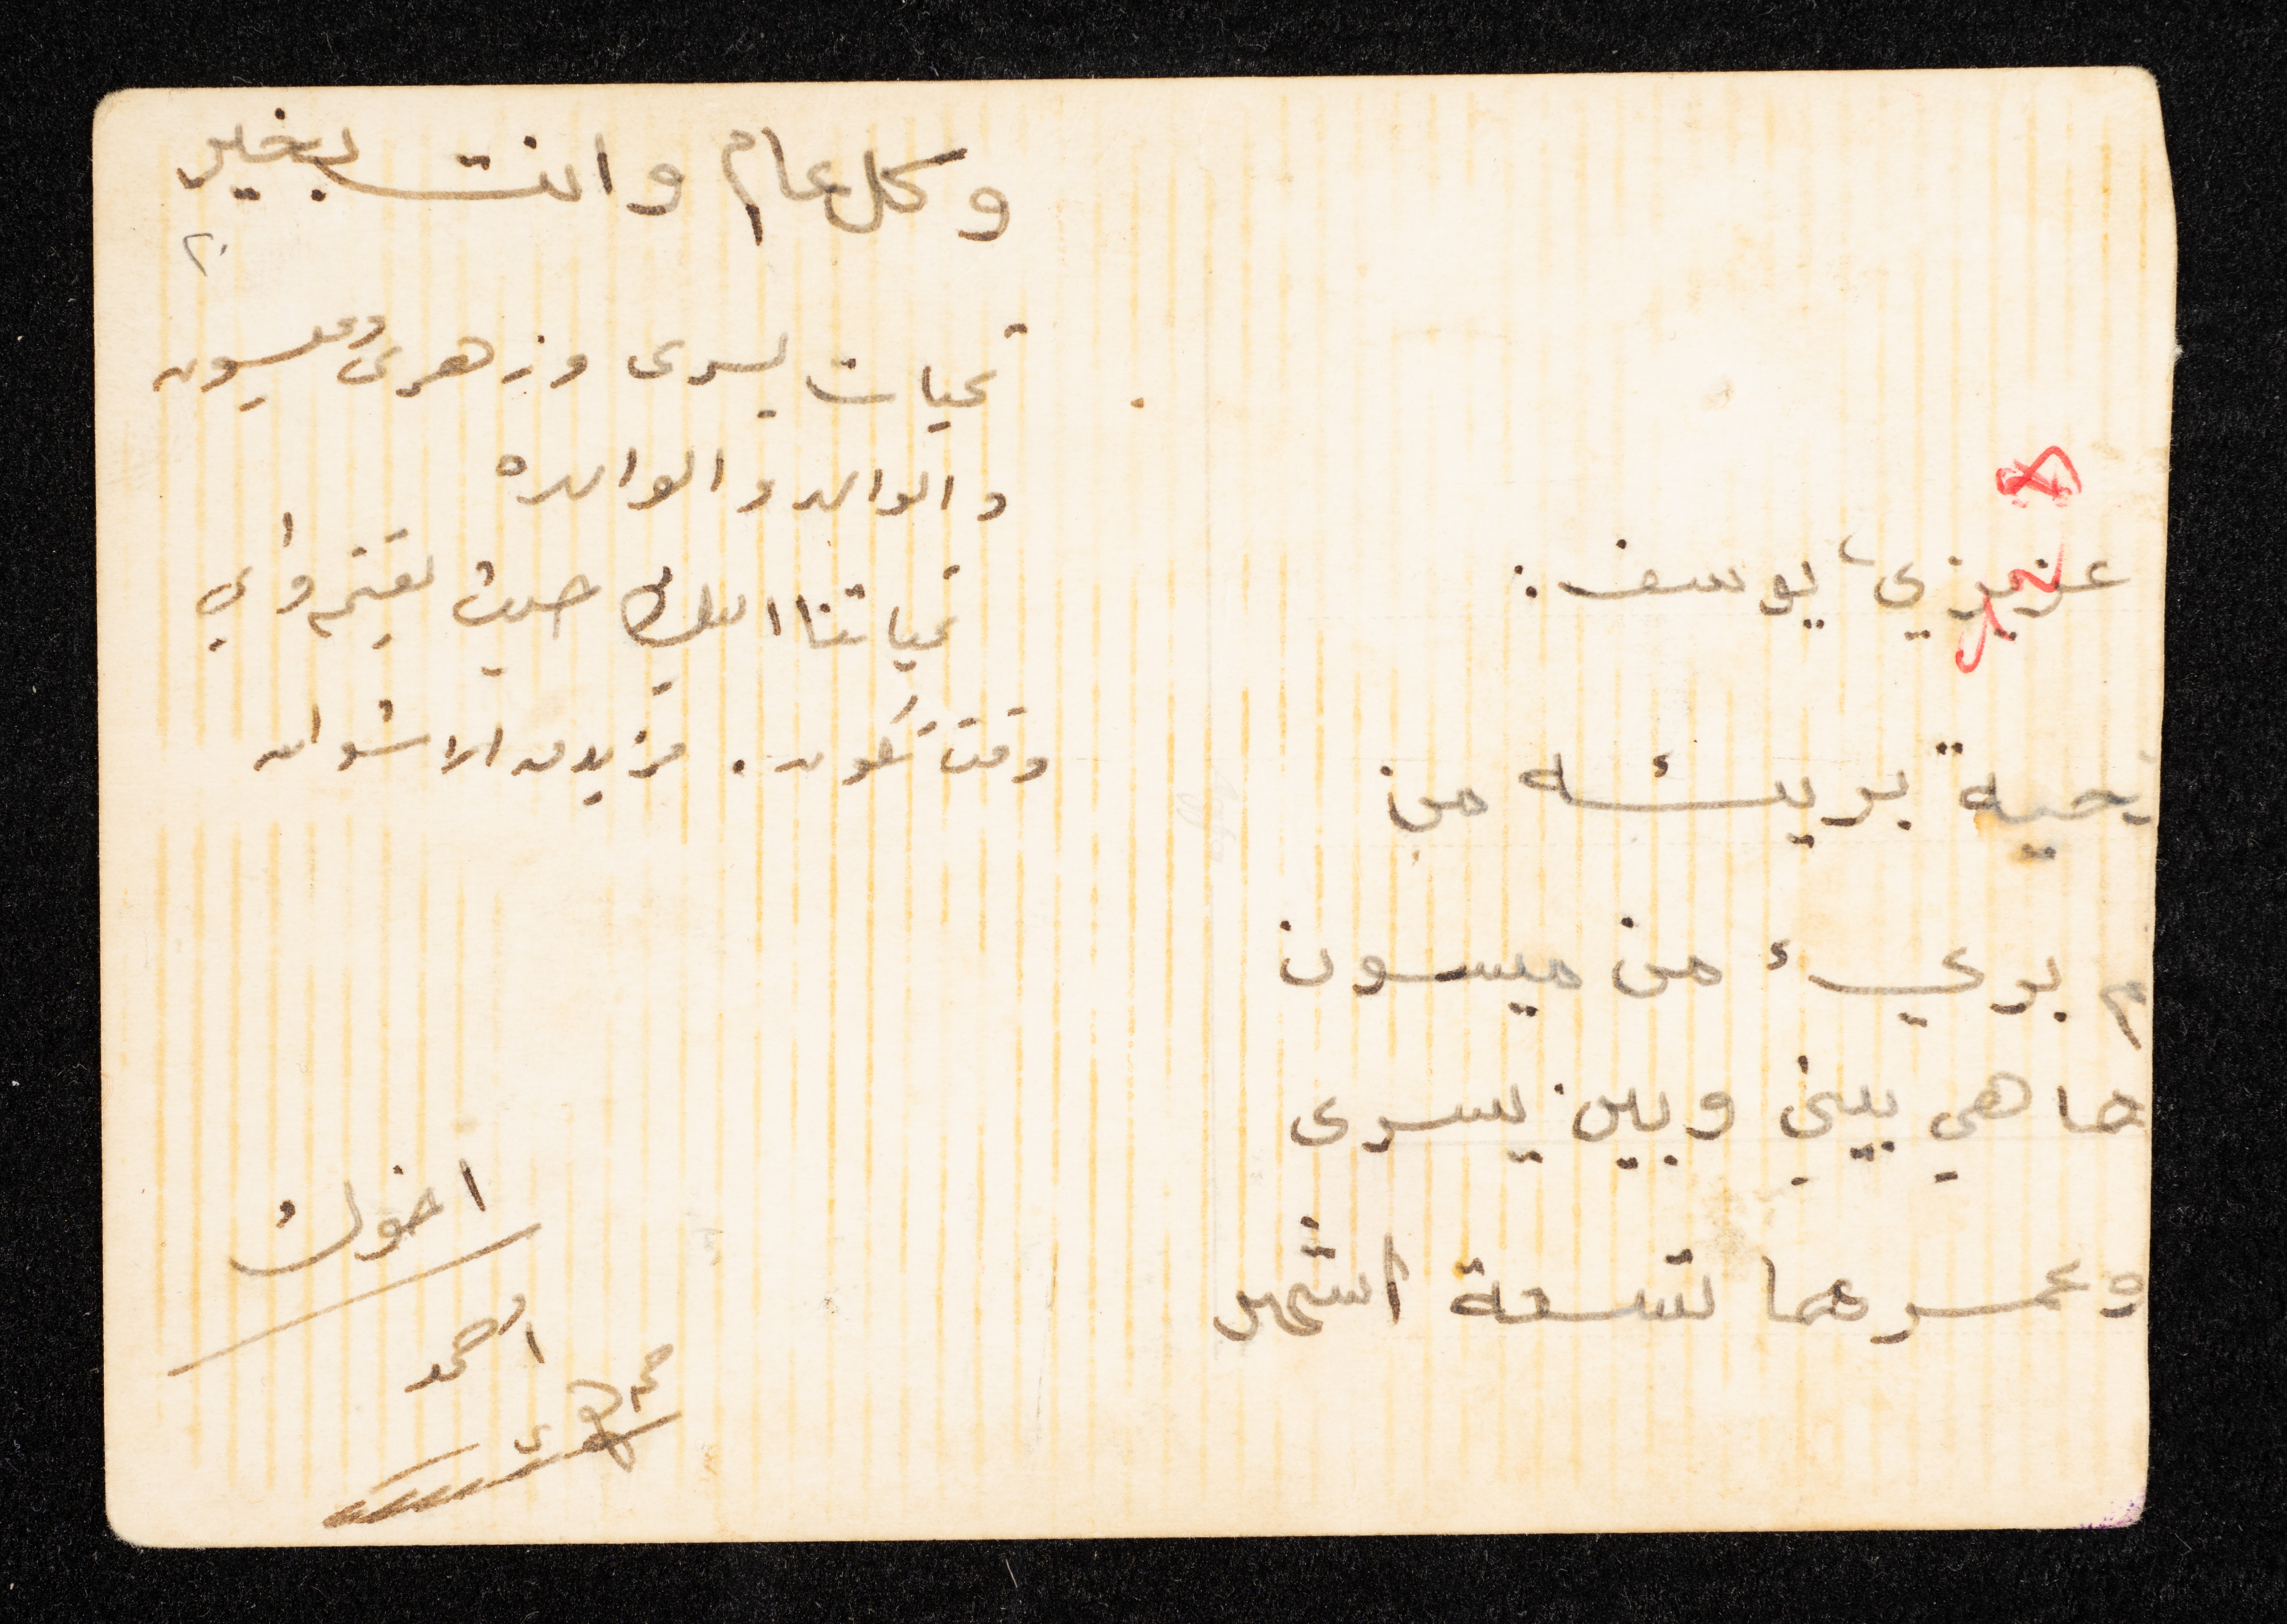 عزيزي يوسف :
تحية بريئه من
م بريء من ميسون
ها هي بيني وبين يسرى
وعمرها تسعة اشهر
وكل عام وانت بخير
تحيات يسرى وزهرى وميسون
والوالد والوالده
تحياتنا اليك حيث تقيم واي
وقت تكون . مزيد من الاشواق
اخوك
احمد